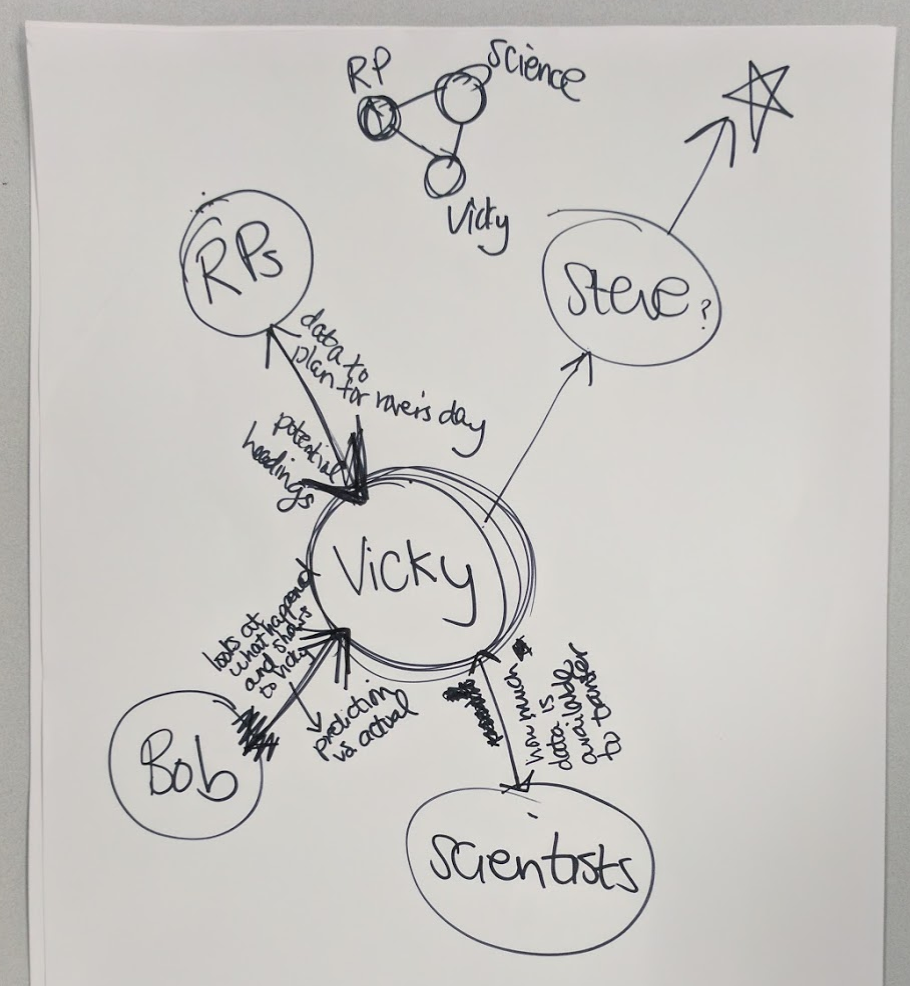 RP
Science
Vicky
RPs
Steve?
data to
plan for rover's day
potential
headings
Vicky
looks at
what happened
and shows
to Vicky
prediction
vs actual
how much
data is
available
to transfer
Bob
Scientists